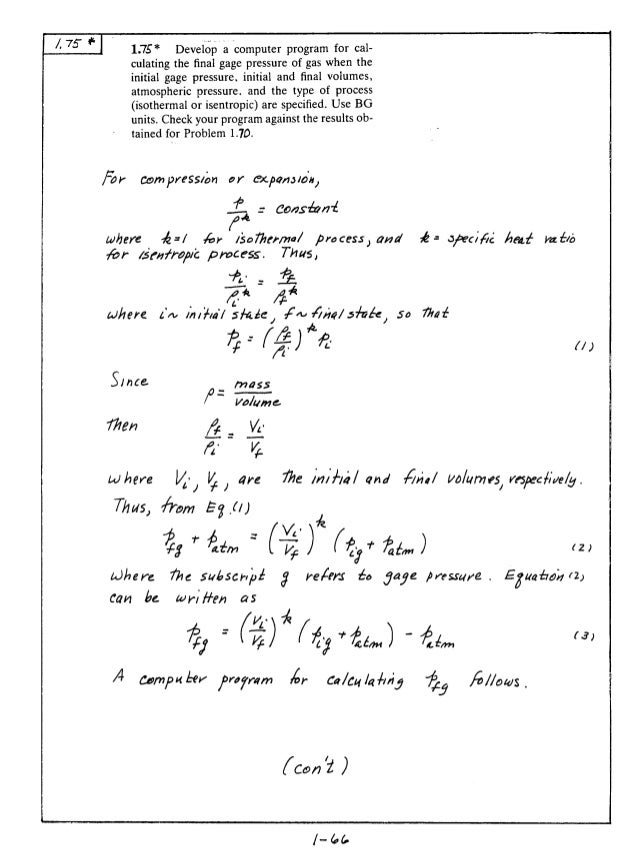 1.75 *
1.75* Develop a computer program for cal-
culating the final gage pressure of gas when the
initial gage pressure, initial and final volumes,
atmospheric pressure, and the type of process
(isothermal or isentropic) are specified. Use BG
units. Check your program against the results ob-
tained for Problem 1.70.
For compression or expansion,
p/ρ^k = constant
where k=1 for isothermal process, and k = specific heat ratio
for isentropic process. Thus,
p_i/ρ_i^k = p_f/ρ_f^k
where i ~ initial state, f ~ final state, so that
p_f = (ρ_f/ρ_i)^k p_i (1)
Since ρ = mass/volume
Then ρ_f/ρ_i = V_i/V_f
where V_i, V_f, are the initial and final volumes, respectively.
Thus, from Eq.(1)
p_fg + p_atm = (V_i/V_f)^k (p_ig + p_atm) (2)
where the subscript g refers to gage pressure. Equation (2)
can be written as
p_fg = (V_i/V_f)^k (p_ig + p_atm) - p_atm (3)
A computer program for calculating p_fg follows.
(con't)
1-66